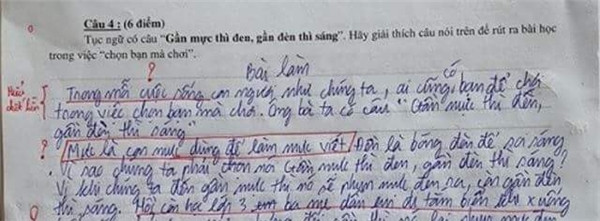 Câu 4 : (6 điểm)
Tục ngữ có câu “Gần mực thì đen, gần đèn thì sáng”. Hãy giải thích câu nói trên để rút ra bài học
trong việc “chọn bạn mà chơi”.
?
Bài làm
Trong mỗi cuộc sống con người như chúng ta, ai cũng có bạn để chơi
trong việc chọn bạn mà chơi. Ông bà ta có câu "Gần mực thì đen,
gần đèn thì sáng
? Mực là con mực dùng để làm mực viết, Đèn là bóng đèn để ra sáng
Vì sao chúng ta phải chọn nơi Gần mực thì đen, gần đèn thì sáng?
Vì khi chúng ta đến gần mực thì nó sẽ phụn mực đen ra, còn gần đèn
thì sáng. Hồi còn học lớp 3, em ba mẹ dẫn em đi tắm biển xuống